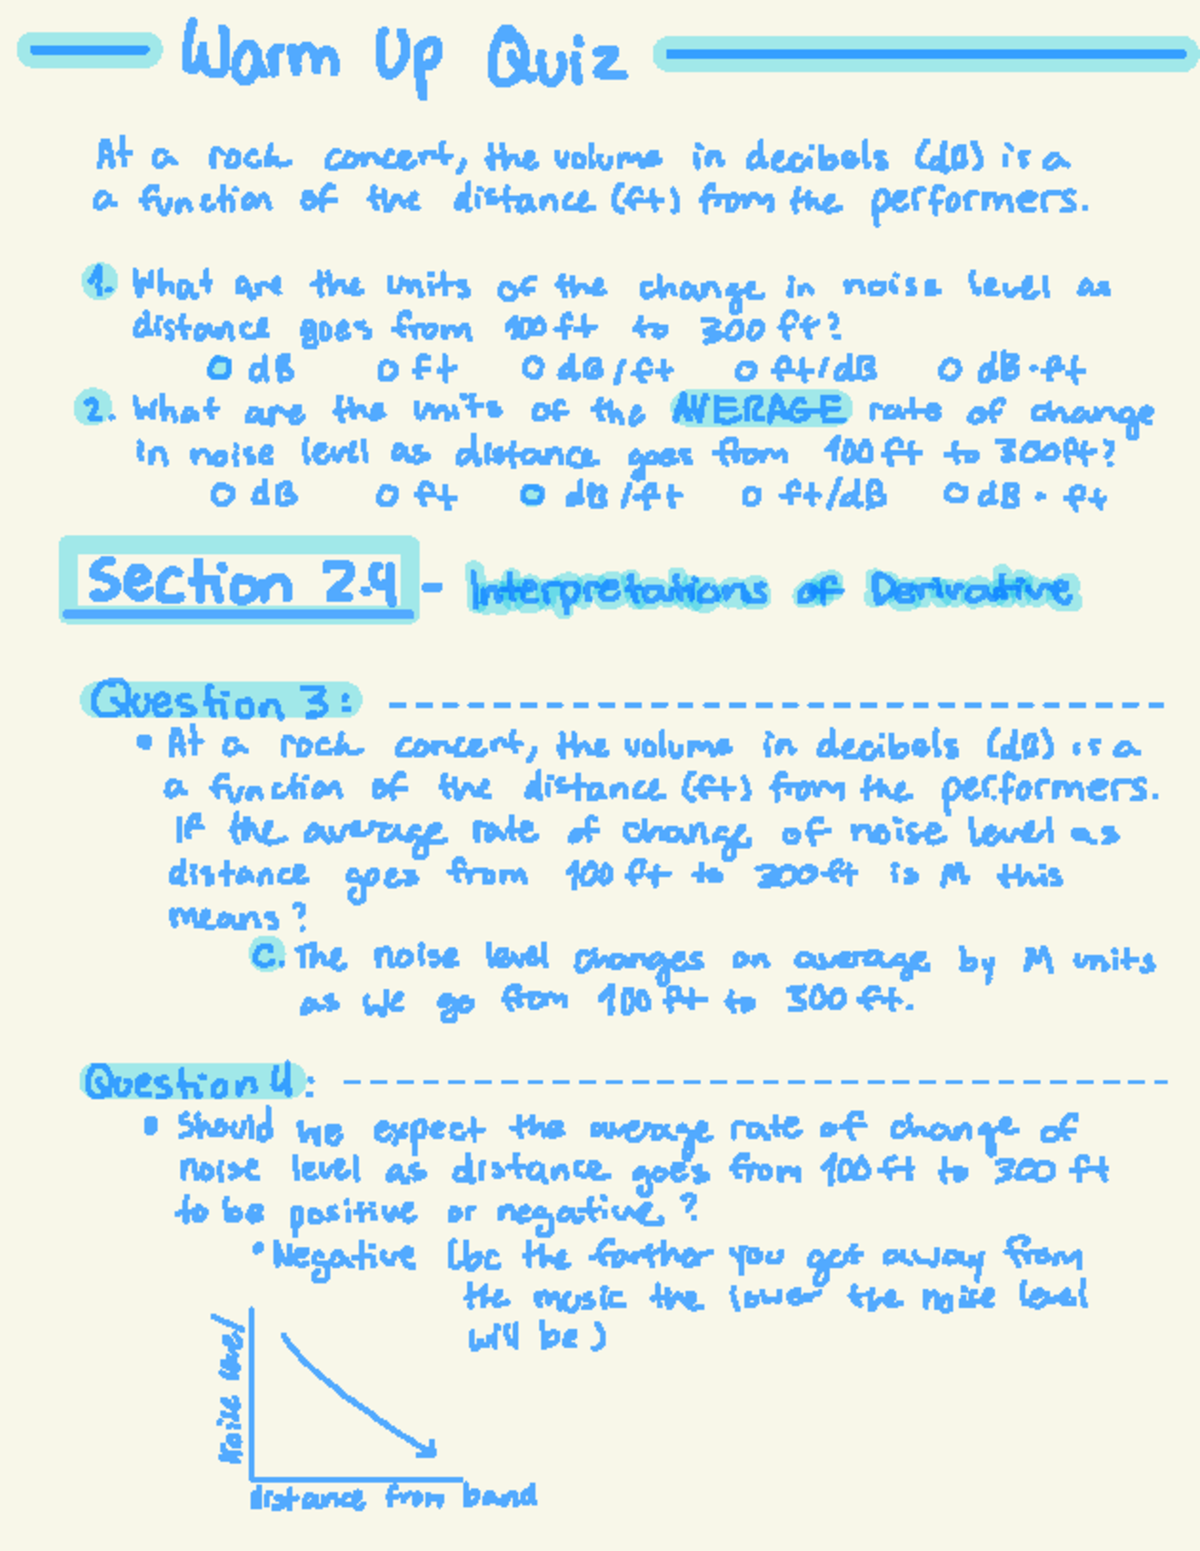 Warm Up Quiz
At a rock concert, the volume in decibels (dB) is a
a function of the distance (ft) from the performers.
1. What are the units of the change in noise level as
distance goes from 100 ft to 300 ft?
O dB O ft O dB/ft O ft/dB O dB·ft
2. What are the units of the AVERAGE rate of change
in noise level as distance goes from 100 ft to 300ft?
O dB O ft O dB/ft O ft/dB O dB · ft
Section 2.4 - Interpretations of Derivative
Question 3:
• At a rock concert, the volume in decibels (dB) is a
a function of the distance (ft) from the performers.
If the average rate of change of noise level as
distance goes from 100 ft to 300ft is M this
means?
C. The noise level changes on average by M units
as we go from 100 ft to 300 ft.
Question 4:
• Should we expect the average rate of change of
noise level as distance goes from 100 ft to 300 ft
to be positive or negative?
• Negative (bc the farther you get away from
the music the lower the noise level
will be)
Noise level
distance from band